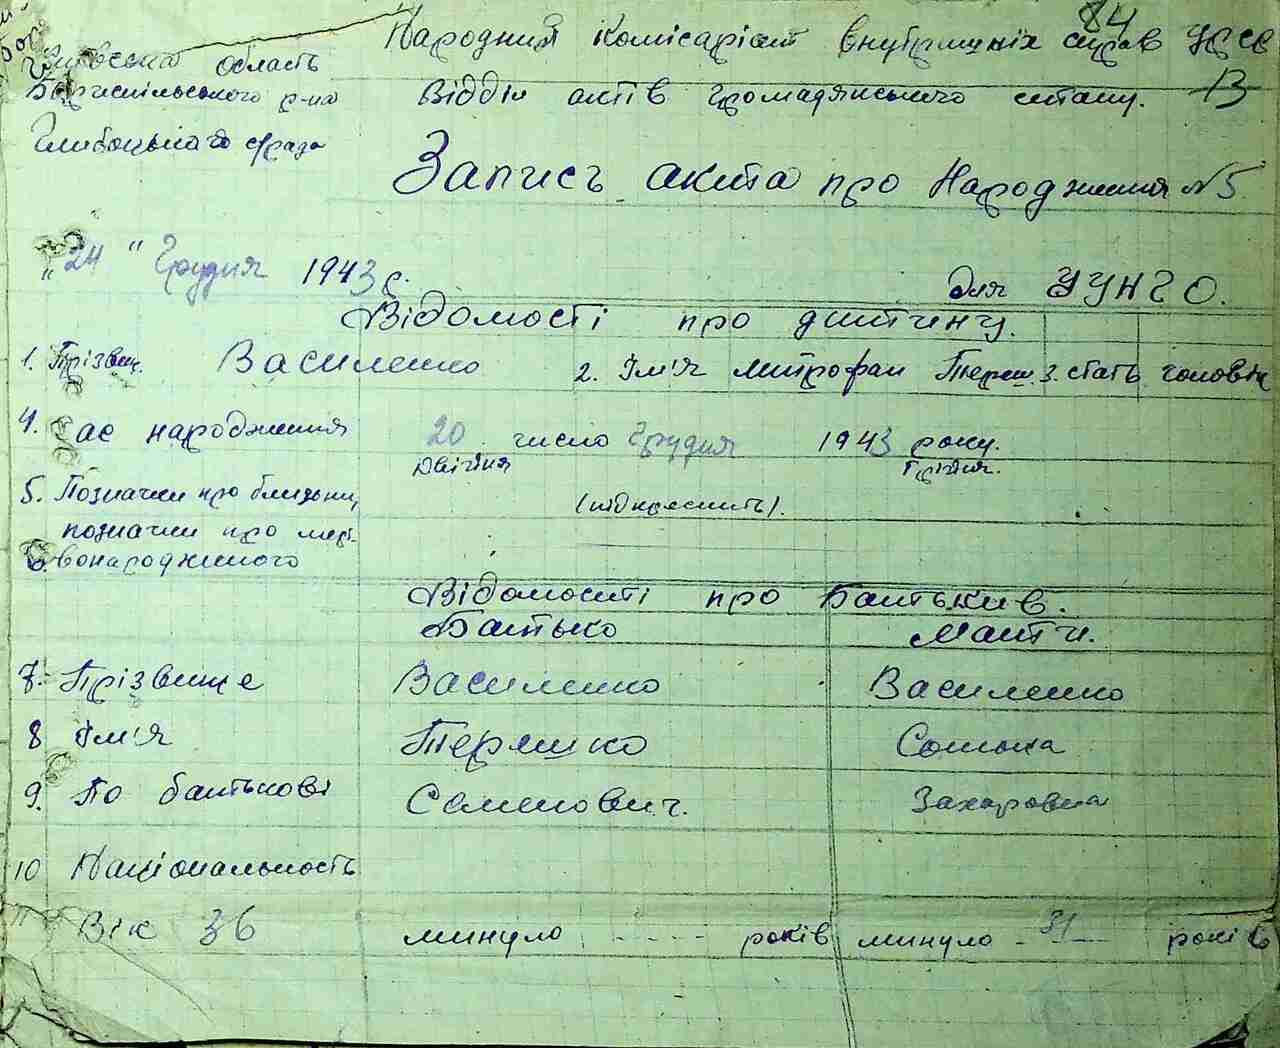 84
Народний Комісаріат внутрішніх справ УРСР
область
Бориспільського р-на
Відділ актів громадянського стану. 13
Глибоцького с/рада
Запись акта про Народження №5
"24" Грудня 1943 р.
для УУНГО.
Відомості про дитину.
1. Прізвищ. Василенко 2. Ім'я Митрофан Тереш. 3. стать чоловік
4. Час народження 20 число Грудня 1943 року.
Двійня Трійня.
5. Позначки про близни, (підкреслить).
позначки про мерт-
6. вонародженого
Відомості про Батьків.
Батько Мати.
7. Прізвище Василенко Василенко
8 Ім'я Терешко Сонька
9. По батькові Семенович. Захаровна
10 Національность
11 Вік 36 минуло років минуло 31 років